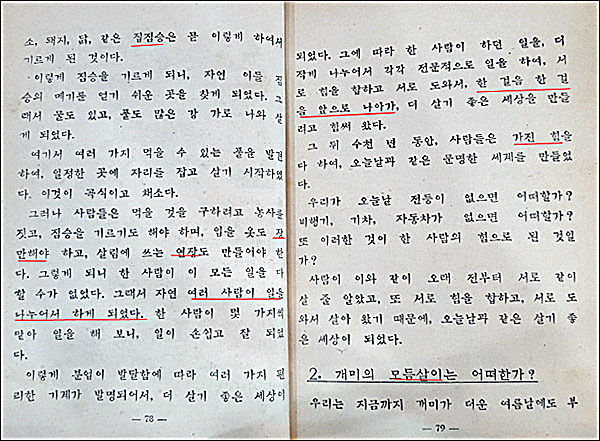 소, 돼지, 닭, 같은 집짐승은 끋 이렇게 하여서
기르게 된 것이다.
이렇게 짐승을 기르게 되니, 자연 이들 짐
승의 메기를 얻기 쉬운 곳을 찾게 되었다. 그
래서 물도 있고, 풀도 많은 강 가로 나와 살
게 되었다.
여기서 여러 가지 먹을 수 있는 풀을 발견
하여, 일정한 곳에 자리를 잡고 살기 시작하였
다. 이것이 곡식이고 채소다.
그러나 사람들은 먹을 것을 구하려고 농사를
짓고, 짐승을 기르기도 해야 하며, 입을 옷도 장
만해야 하고, 살림에 쓰는 연장도 만들어야 한
다. 그렇게 되니 한 사람이 이 모든 일을 다
할 수가 없었다. 그래서 자연 여러 사람이 일을
나누어서 하게 되었다. 한 사람이 몇 가지씩
맡아 일을 해 보니, 일이 손쉽고 잘 되었
다.
이렇게 분업이 발달함에 따라 여러 가지 편
리한 기계가 발명되어서, 더 살기 좋은 세상이
— 78 —
되었다. 그에 따라 한 사람이 하던 일을, 더
작게 나누어서 각각 전문적으로 일을 하여, 서
로 힘을 합하고 서로 도와서, 한 걸음 한 걸
음 앞으로 나아가, 더 살기 좋은 세상을 만들
려고 힘써 왔다.
그 뒤 수천 년 동안, 사람들은 가진 힘을
다 하여, 오늘날과 같은 문명한 세계를 만들었
다.
우리가 오늘날 전등이 없으면 어떠할가?
비행기, 기차, 자동차가 없으면 어떠할가?
또 이러한 것이 한 사람의 힘으로 된 것일
가?
사람이 이와 같이 오래 전부터 서로 같이
살 줄 알았고, 또 서로 힘을 합하고, 서로 도
와서 살아 왔기 때문에, 오늘날과 같은 살기 좋
은 세상이 되었다.
2. 개미의 모듬살이는 어떠한가?
우리는 지금까지 개미가 더운 여름날에도 부
— 79 —